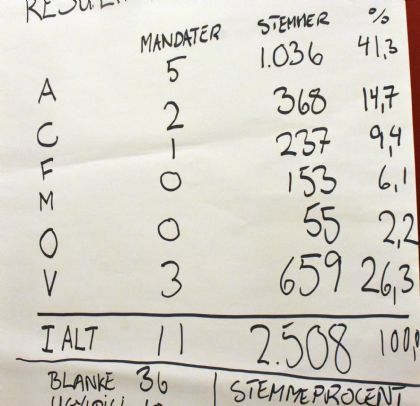 MANDATER STEMMER %
A 5 1.036 41,3
C 2 368 14,7
F 1 237 9,4
M 0 153 6,1
O 0 55 2,2
V 3 659 26,3
I ALT 11 2.508 100,
BLANKE 36 STEMMEPROCENT